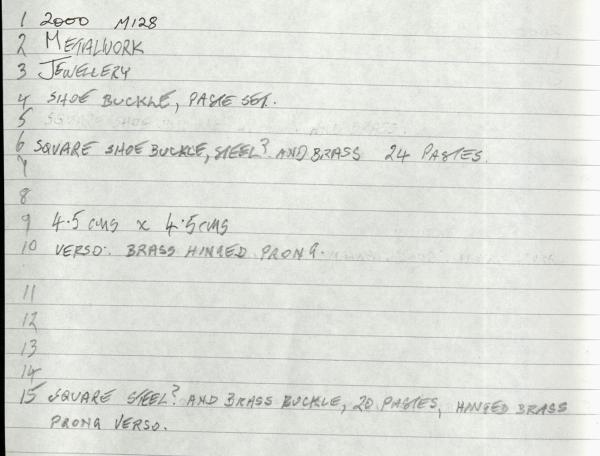 1 2000 M128
2 METALWORK
3 JEWELLERY
4 SHOE BUCKLE, PASTE SET.
5 SQUARE SHOE AND BRASS.
6 SQUARE SHOE BUCKLE, STEEL? AND BRASS 24 PASTES.
7
8
9 4.5 cms x 4.5 cms
10 VERSO: BRASS HINGED PRONG.
11
12
13
14
15 SQUARE STEEL? AND BRASS BUCKLE, 20 PASTES, HINGED BRASS
PRONG VERSO.